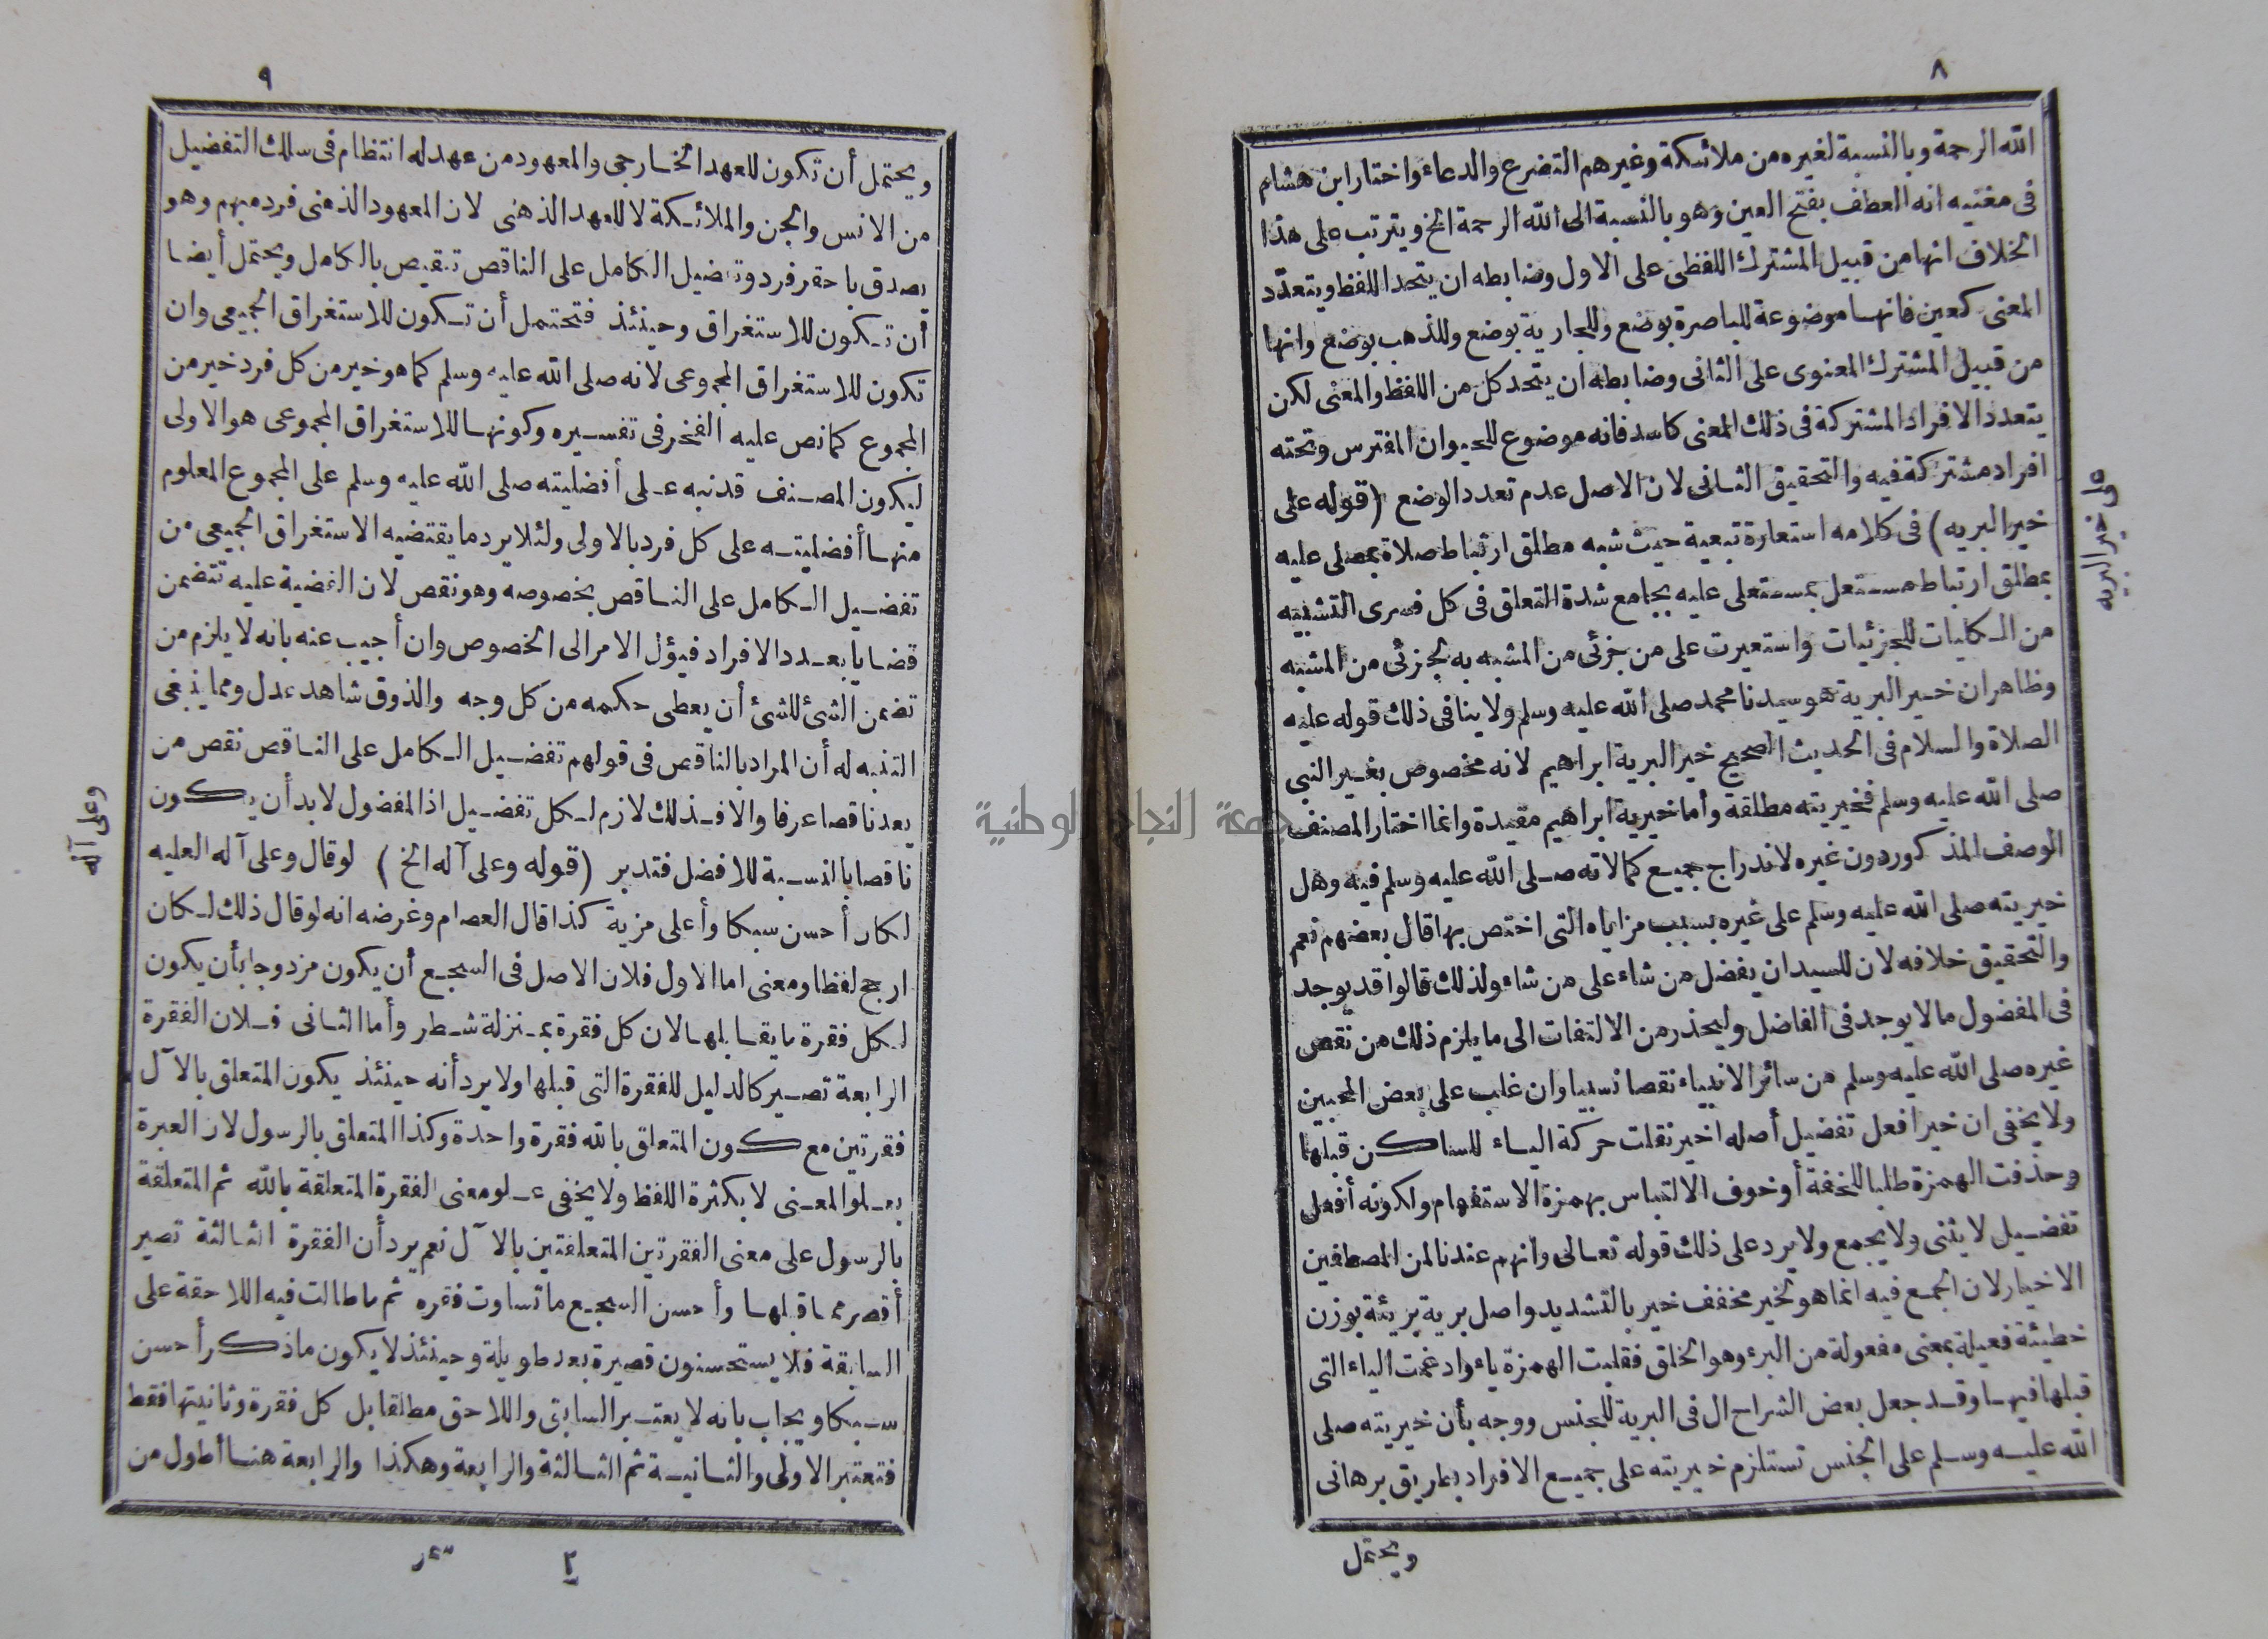 ٨
الله الرحمة وبالنسبة لغيره من ملائكة وغيرهم التضرع والدعاء واختار ابن هشام
فى مغنيه انه العطف بفتح العين وهو بالنسبة الى الله الرحمة الخ ويترتب على هذا
الخلاف انها من قبيل المشترك اللفظى على الاول وضابطه ان يتحد اللفظ ويتعدد
المعنى كعين فانها موضوعة للباصرة بوضع وللجارية بوضع وللذهب بوضع وانها
من قبيل المشترك المعنوى على الثانى وضابطه ان يتحد كل من اللفظ والمعنى لكن
يتعدد الافراد المشتركة فى ذلك المعنى كاسد فانه موضوع للحيوان المفترس وتحته
افراد مشتركة فيه والتحقيق الثانى لان الاصل عدم تعدد الوضع (قوله على
خير البريه) فى كلامه استعارة تبعية حيث شبه مطلق ارتباط صلاة بمصلى عليه
بمطلق ارتباط مستعل بمستعلى عليه بجامع شدة التعلق فى كل فسرى التشبيه
من الكليات للجزئيات واستعيرت على من جزئى من المشبه به لجزئى من المشبه
وظاهر ان خير البرية هو سيدنا محمد صلى الله عليه وسلم ولا ينافى ذلك قوله عليه
الصلاة والسلام فى الحديث الصحيح خير البرية ابراهيم لانه مخصوص بغير النبى
صلى الله عليه وسلم فخيريته مطلقة وأما خيرية ابراهيم مقيدة وانما اختار المصنف
الوصف المذكور دون غيره لاندراج جميع كمالاته صلى الله عليه وسلم فيه وهل
خيريته صلى الله عليه وسلم على غيره بسبب مزاياه التى اختص بها قال بعضهم نعم
والتحقيق خلافه لان للسيد ان يفضل من شاء على من شاء ولذلك قالوا قد يوجد
فى المفضول ما لا يوجد فى الفاضل وليحذر من الالتفات الى ما يلزم ذلك من نقص
غيره صلى الله عليه وسلم من سائر الانبياء نقصا نسبيا وان غلب على بعض المحبين
ولا يخفى ان خير افعل تفضيل أصله اخير نقلت حركة الياء للساكن قبلها
وحذفت الهمزة طلبا للخفة أو خوف الالتباس بهمزة الاستفهام ولكونه أفعل
تفضيل لا يثنى ولا يجمع ولا يرد على ذلك قوله تعالى وانهم عندنا لمن المصطفين
الاخيار لان الجمع فيه انما هو لخير مخفف خير بالتشديد واصل برية بريئة بوزن
خطيئة فعيلة بمعنى مفعولة من البرء وهو الخلق فقلبت الهمزة ياء وادغمت الياء التى
قبلها فيها وقد جعل بعض الشراح ال فى البرية للجنس ووجه بأن خيريته صلى
الله عليه وسلم على الجنس تستلزم خيريته على جميع الافراد بطريق برهانى
ويحتمل
على خير البريه
٩
ويحتمل أن تكون للعهد الخارجى والمعهود من عهد له انتظام فى سلك التفضيل
من الانس والجن والملائكة لا للعهد الذهنى لان المعهود الذهنى فرد مبهم وهو
يصدق باحقر فرد وتفضيل الكامل على الناقص تنقيص بالكامل ويحتمل أيضا
أن تكون للاستغراق وحينئذ فتحتمل أن تكون للاستغراق الجميعى وان
تكون للاستغراق المجموعى لانه صلى الله عليه وسلم كما هو خير من كل فرد خير من
المجموع كما نص عليه الفخر فى تفسيره وكونها للاستغراق المجموعى هو الاولى
ليكون المصنف قد نبه على أفضليته صلى الله عليه وسلم على المجموع المعلوم
منها أفضليته على كل فرد بالاولى ولئلا يرد ما يقتضيه الاستغراق الجميعى من
تفضيل الكامل على الناقص بخصوصه وهو نقص لان القضية عليه تتضمن
قضايا بعدد الافراد فيؤل الامر الى الخصوص وان أجيب عنه بانه لا يلزم من
تضمن الشئ للشئ أن يعطى حكمه من كل وجه والذوق شاهد عدل ومما ينبغى
التنبه له أن المراد بالناقص فى قولهم تفضيل الكامل على الناقص نقص من
يعد ناقصا عرفا والا فذلك لازم لكل تفضيل اذ المفضول لا بد أن يكون
ناقصا بالنسبة للافضل فتدبر (قوله وعلى آله الخ) لو قال وعلى آله العليه
لكان أحسن سبكا وأعلى مزية كذا قال العصام وغرضه انه لو قال ذلك لكان
ارجح لفظا ومعنى اما الاول فلان الاصل فى السجع أن يكون مزدوجا بأن يكون
لكل فقرة ما يقابلها لان كل فقرة بمنزلة شطر وأما الثانى فلان الفقرة
الرابعة تصير كالدليل للفقرة التى قبلها ولا يرد أنه حينئذ يكون المتعلق بالآل
فقرتين مع كون المتعلق بالله فقرة واحدة وكذا المتعلق بالرسول لان العبرة
بعلو المعنى لا بكثرة اللفظ ولا يخفى علو معنى الفقرة المتعلقة بالله ثم المتعلقة
بالرسول على معنى الفقرتين المتعلقتين بالآل نعم يرد أن الفقرة الثالثة تصير
أقصر مما قبلها وأحسن السجع ما تساوت فقره ثم ما طالت فيه اللاحقة على
السابقة فلا يستحسنون قصيرة بعد طويلة وحينئذ لا يكون ما ذكر أحسن
سبكا ويجاب بانه لا يعتبر السابق واللاحق مطلقا بل كل فقرة وثانيتها فقط
فتعتبر الاولى والثانية ثم الثالثة والرابعة وهكذا والرابعة هنا أطول من
٢
وعلى آله
جامعة النجاح الوطنية